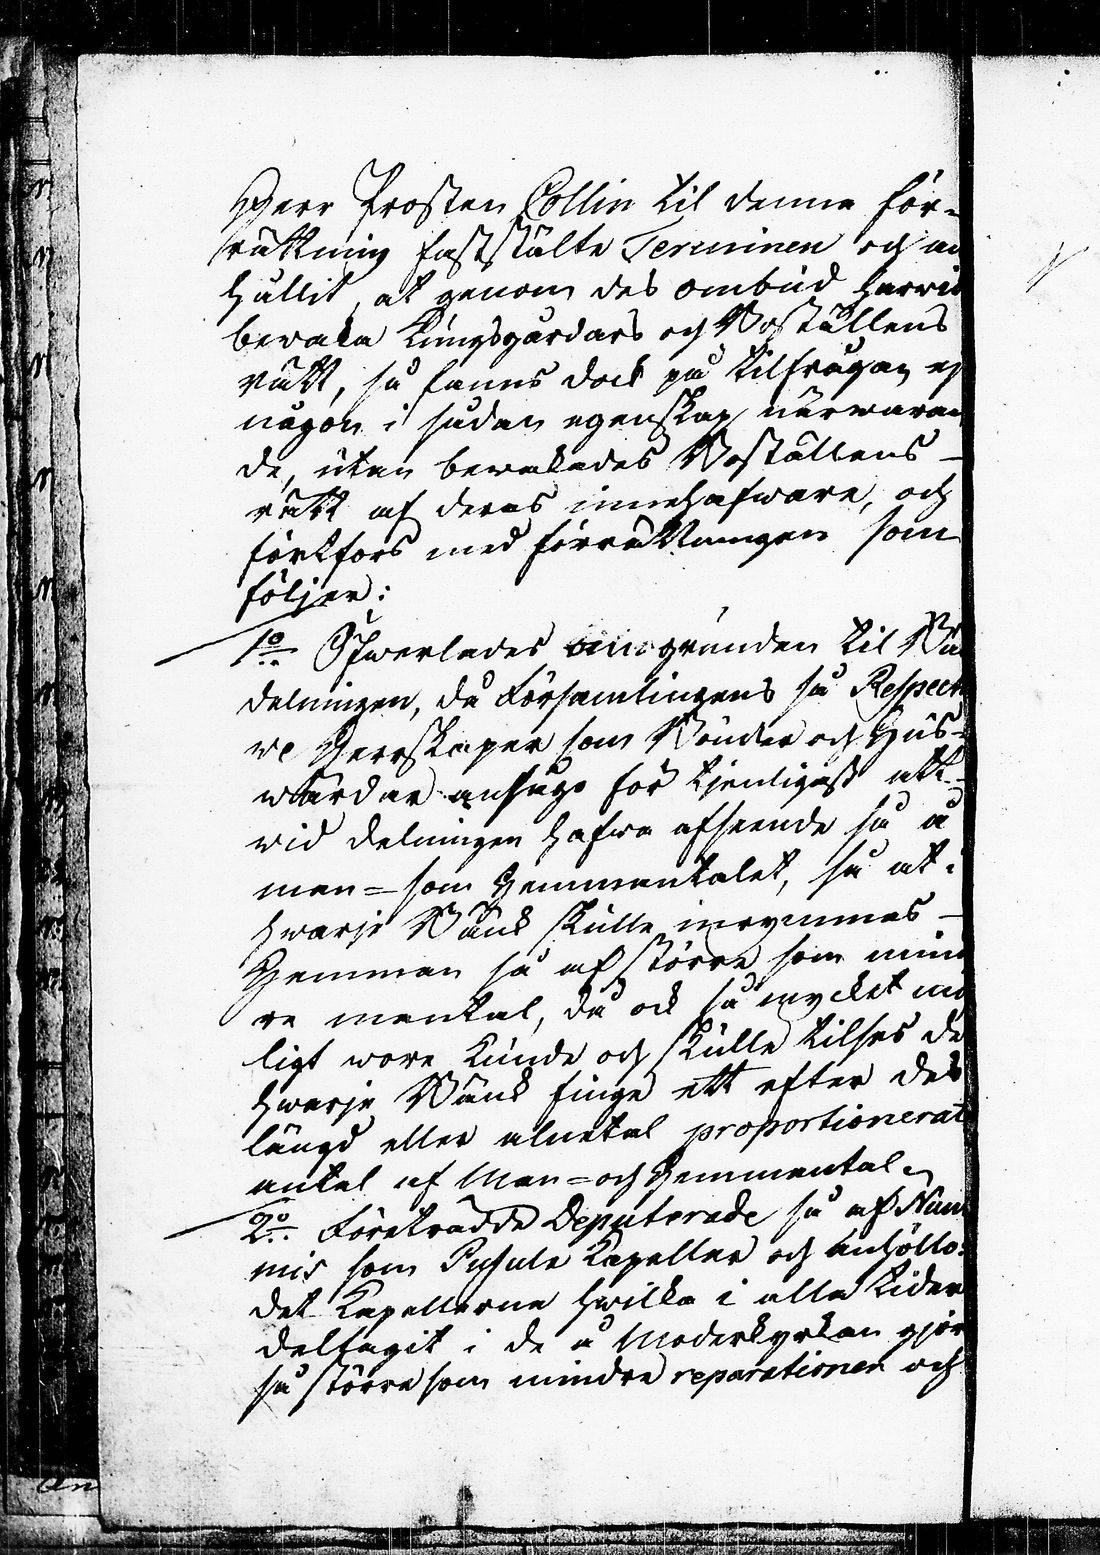 Herr Prosten Collin til denna för-
rättning fastställte Terminen och an
hållit, at genom des ombud härvid
bevaka Kungsgårdars och Boställens
rätt, så fanns dock på tilfrågan ej
någon i sådan egenskap närwaran
de, utan bevakades Boställens
rätt af deras innehafware, och
fortfors med förrättningen som
följer:
1o Öfwerlades om grunden til Bän
delningen, då Församlingens så Respecti
ve Herrskaper som Bönder och Hus-
wärdar ansågo för tjenligast att
vid delningen hafva afseende så å
man= som Hemmantalet, så at i
hwarje Bänk skulle inrymmas
Hemman så af större som mind
re mantal, då ock så mycket mö
ligt wore kunde och skulle tilses det
hwarje Bänk finge ett efter des
längd eller alnetal proportionerat
antal af Man= och Hemmantal.
2o Företrädde Deputerade så af Num
mis som Pusula Kapeller och anhöllo
det Kapellerne hwilka i alla tider
deltagit i de å Moderkyrkan gjor
så större som mindre reparationer och